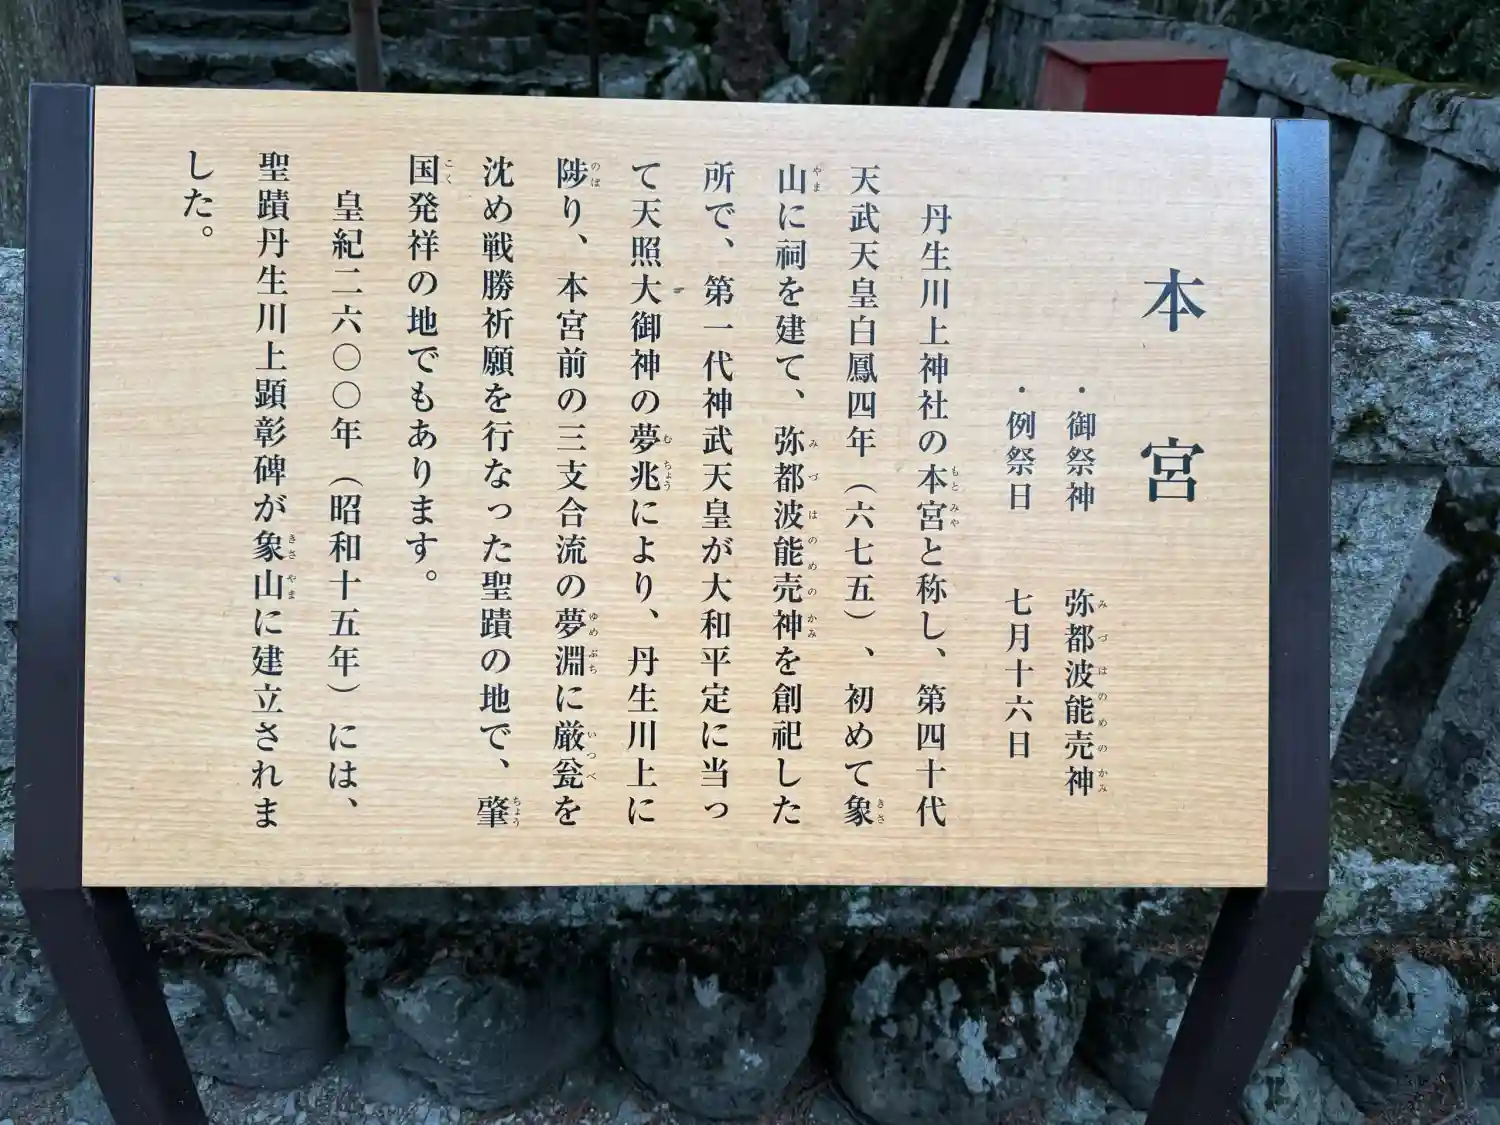 本宮
・御祭神 弥都波能売神
・例祭日 七月十六日
丹生川上神社の本宮と称し、第四十代
天武天皇白鳳四年（六七五）、初めて象
山に祠を建て、弥都波能売神を創祀した
所で、第一代神武天皇が大和平定に当っ
て天照大御神の夢兆により、丹生川上に
陟り、本宮前の三支合流の夢淵に厳瓮を
沈め戦勝祈願を行なった聖蹟の地で、肇
国発祥の地でもあります。
皇紀二六〇〇年（昭和十五年）には、
聖蹟丹生川上顕彰碑が象山に建立されま
した。